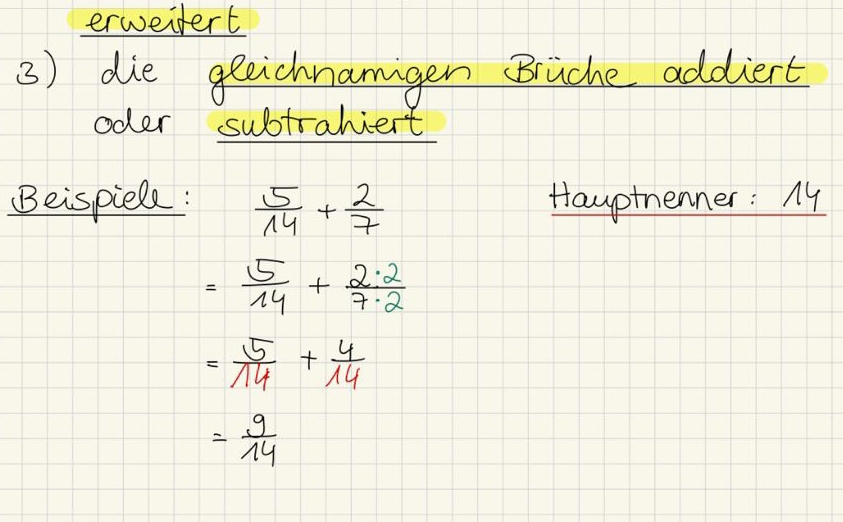 erweitert
3) die gleichnamigen Brüche addiert
oder subtrahiert
Beispiele: 5/14 + 2/7 Hauptnenner: 14
= 5/14 + 2·2/7·2
= 5/14 + 4/14
= 9/14